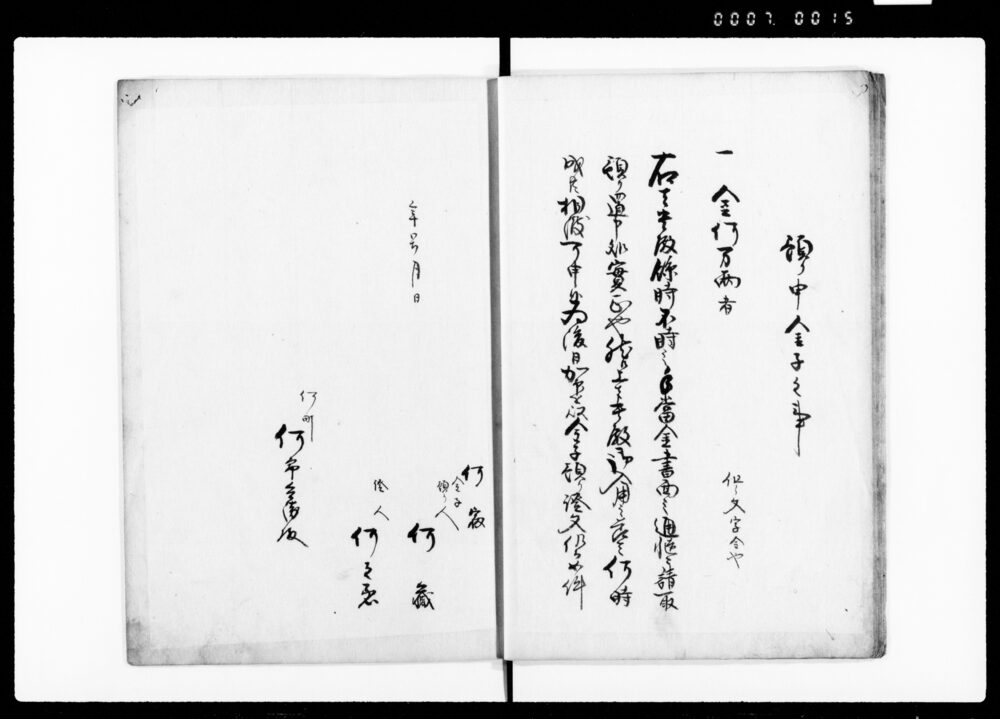 0007.0015
預り申金子之事
一 金何万両者
但シ文字金也
右者貴殿餘時不時之手當金書面之通慥ニ請取
預り置申処實正也然ル上者貴殿御入用之節者何時
成共相渡可申候為後日加印を以金子預り證文仍而如件
年号月日
何家
金子預り人
何蔵
證人
何之丞
何町
何市兵衛殿